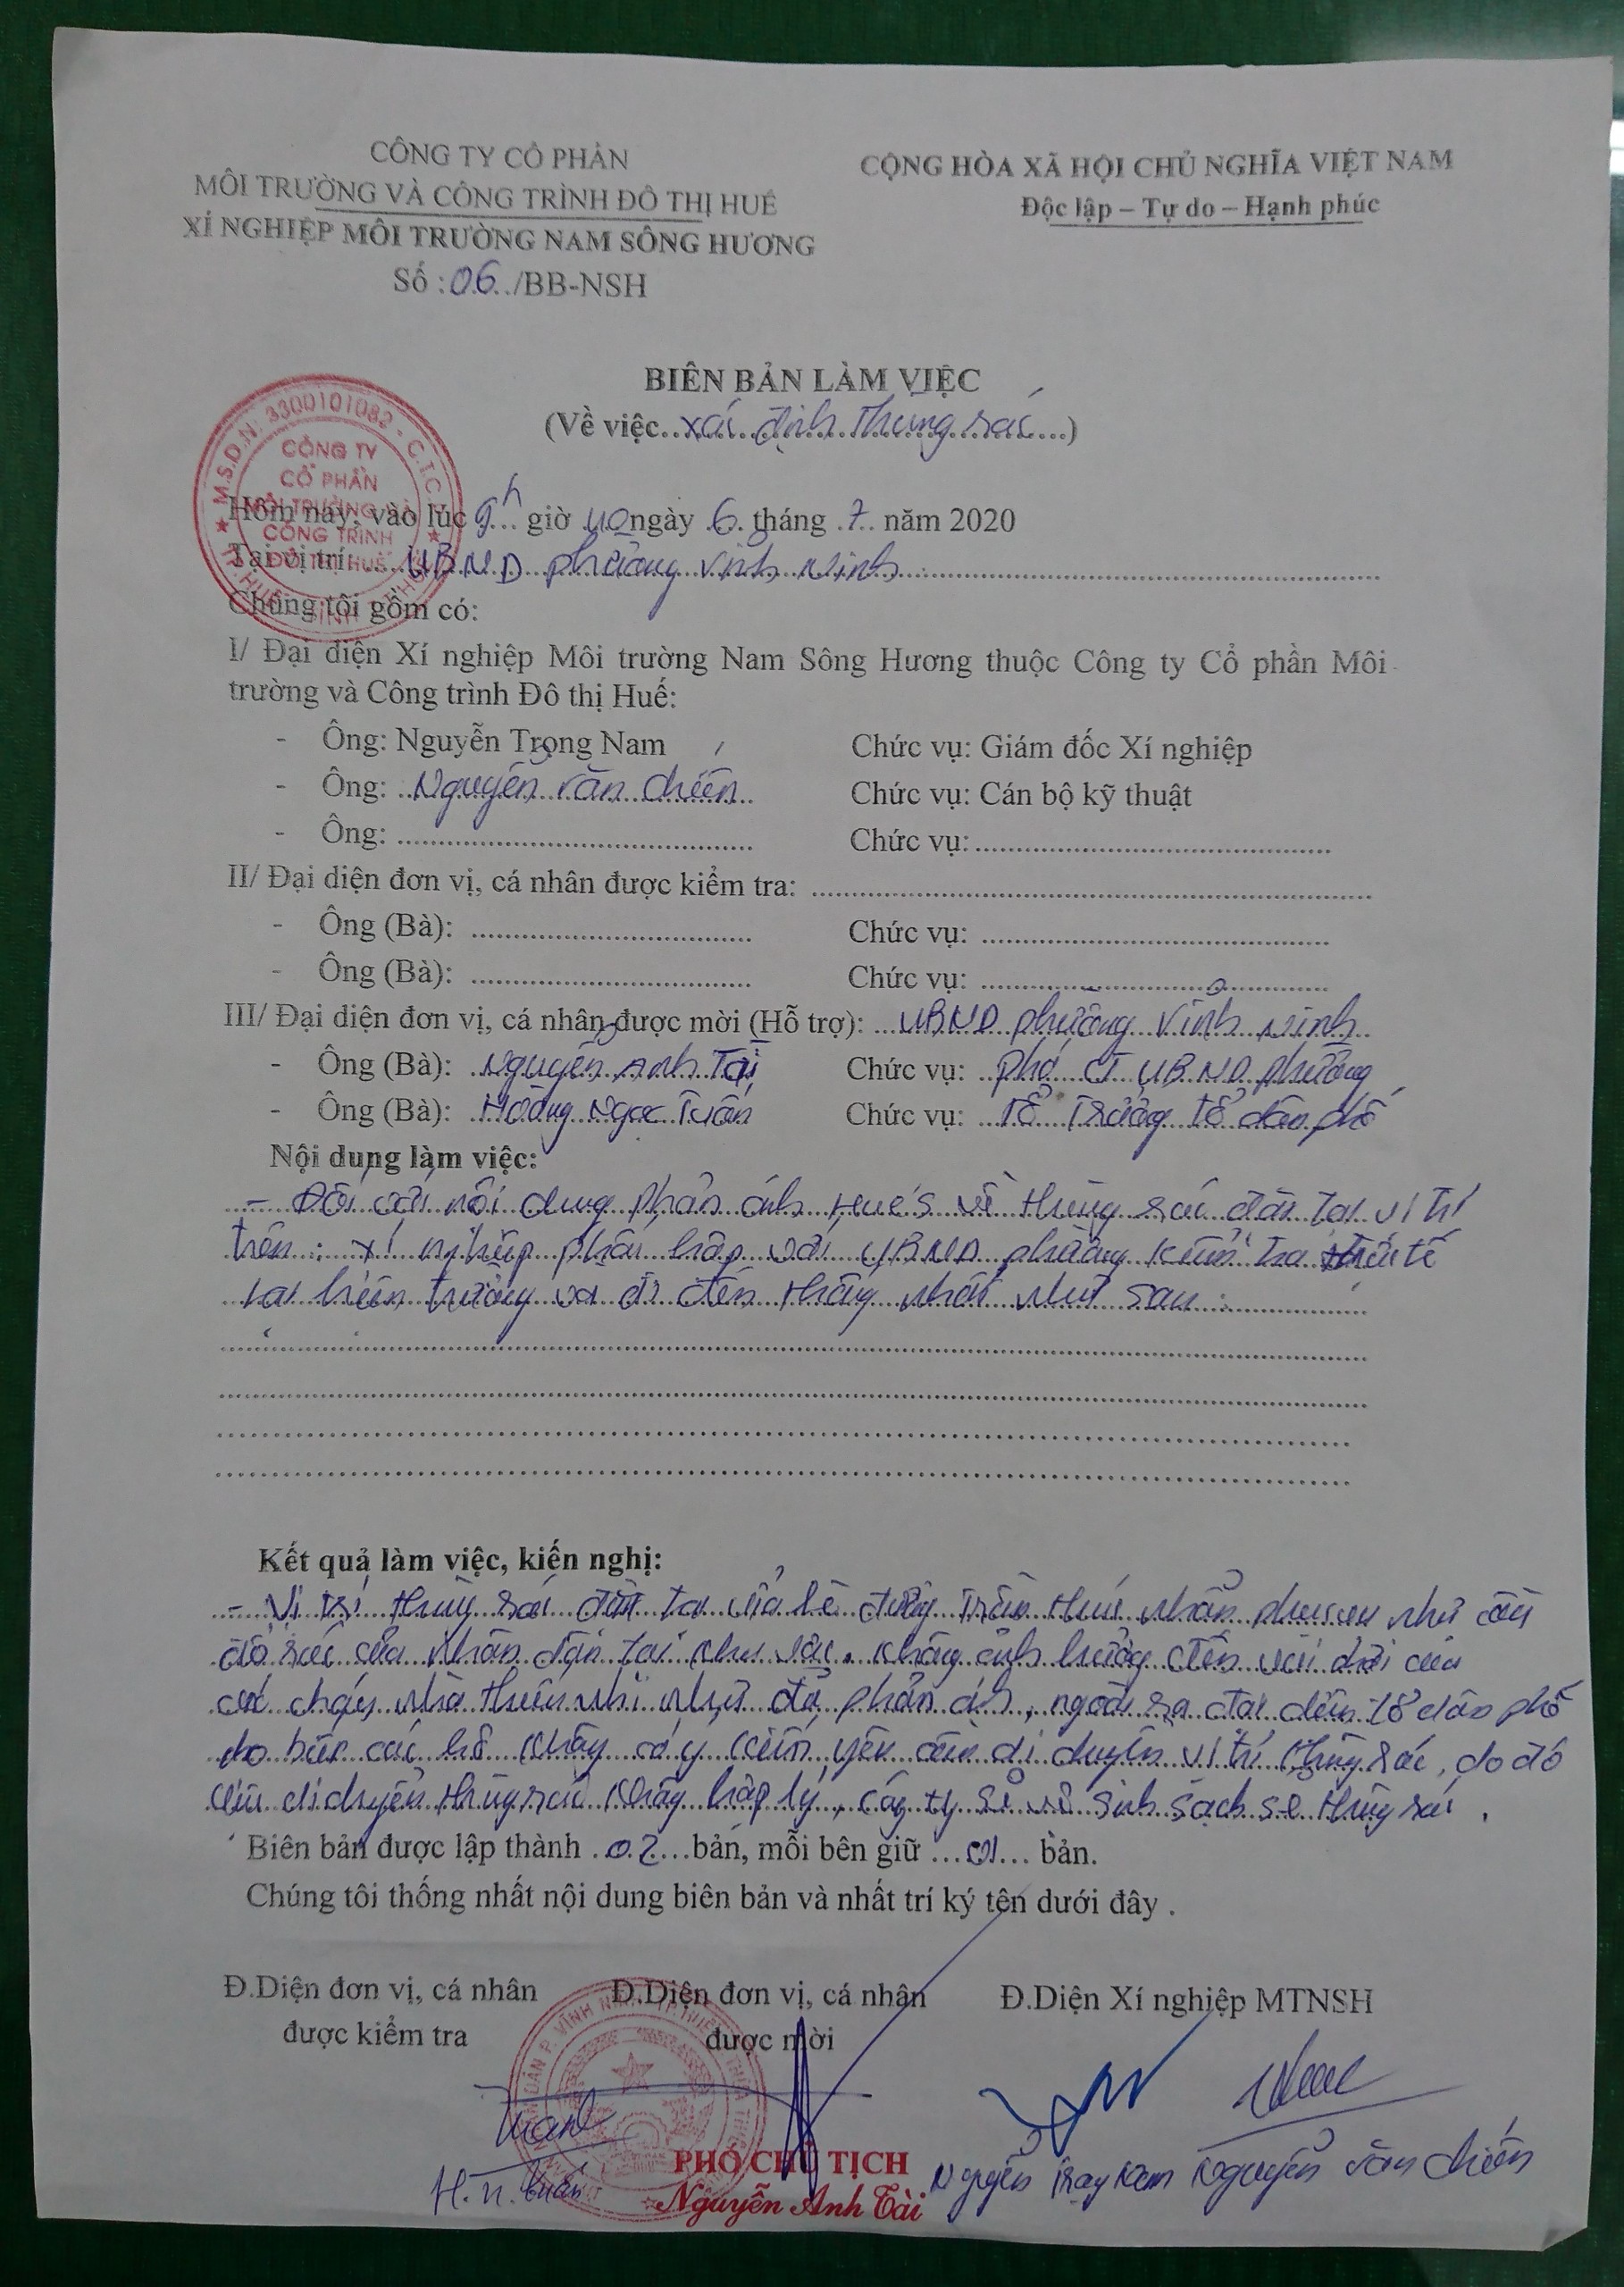 CÔNG TY CỔ PHẦN
MÔI TRƯỜNG VÀ CÔNG TRÌNH ĐÔ THỊ HUẾ
XÍ NGHIỆP MÔI TRƯỜNG NAM SÔNG HƯƠNG
Số :06../BB-NSH
CỘNG HÒA XÃ HỘI CHỦ NGHĨA VIỆT NAM
Độc lập – Tự do – Hạnh phúc
BIÊN BẢN LÀM VIỆC
(Về việc..xác định thùng rác....)
M.S.D.N: 3300101082 - C.T.C.
CÔNG TY
CỔ PHẦN
MÔI TRƯỜNG VÀ
CÔNG TRÌNH
ĐÔ THỊ HUẾ
Hôm nay, vào lúc 9h.. giờ 40 ngày .6. tháng .7.. năm 2020
Tại vị trí:.....UBND phường Vĩnh Ninh
Chúng tôi gồm có:
I/ Đại diện Xí nghiệp Môi trường Nam Sông Hương thuộc Công ty Cổ phần Môi
trường và Công trình Đô thị Huế:
- Ông: Nguyễn Trọng Nam Chức vụ: Giám đốc Xí nghiệp
- Ông: ..Nguyễn văn chiến Chức vụ: Cán bộ kỹ thuật
- Ông: ............ Chức vụ: ............
II/ Đại diện đơn vị, cá nhân được kiểm tra: ............
- Ông (Bà): ............ Chức vụ: ............
- Ông (Bà): ............ Chức vụ: ............
III/ Đại diện đơn vị, cá nhân được mời (Hỗ trợ): ...UBND phường Vĩnh Ninh
- Ông (Bà): ..Nguyễn Anh Tài Chức vụ: ..phó CT UBND phường
- Ông (Bà): ..Hoàng Ngọc Tuấn Chức vụ: ..Tổ Trưởng tổ dân phố
Nội dung làm việc:
- Đối với nội dung phản ánh Hue S về thùng rác đặt tại vị trí
trên: xí nghiệp phối hợp với UBND phường kiểm tra thực tế
tại hiện trường và đi đến thống nhất như sau:
Kết quả làm việc, kiến nghị:
- Vị trí thùng rác đặt tại vỉa hè đường Trần Thúc Nhẫn phục vụ nhu cầu
đổ rác của nhân dân tại khu vực. không ảnh hưởng đến vui chơi của
các cháy nhà thiếu nhi như đã phản ánh, ngoài ra đại diện tổ dân phố
cho biết các hộ không có ý kiến yêu cầu di chuyển vị trí thùng rác, do đó
việc di chuyển thùng rác không hợp lý, công ty sẽ vệ sinh sạch sẽ thùng rác.
Biên bản được lập thành .02...bản, mỗi bên giữ ...01... bản.
Chúng tôi thống nhất nội dung biên bản và nhất trí ký tên dưới đây .
Đ.Diện đơn vị, cá nhân
được kiểm tra
Đ.Diện đơn vị, cá nhân
được mời
Đ.Diện Xí nghiệp MTNSH
H.N.Tuấn
PHÓ CHỦ TỊCH
Nguyễn Anh Tài
Nguyễn Trọng Nam
Nguyễn văn chiến